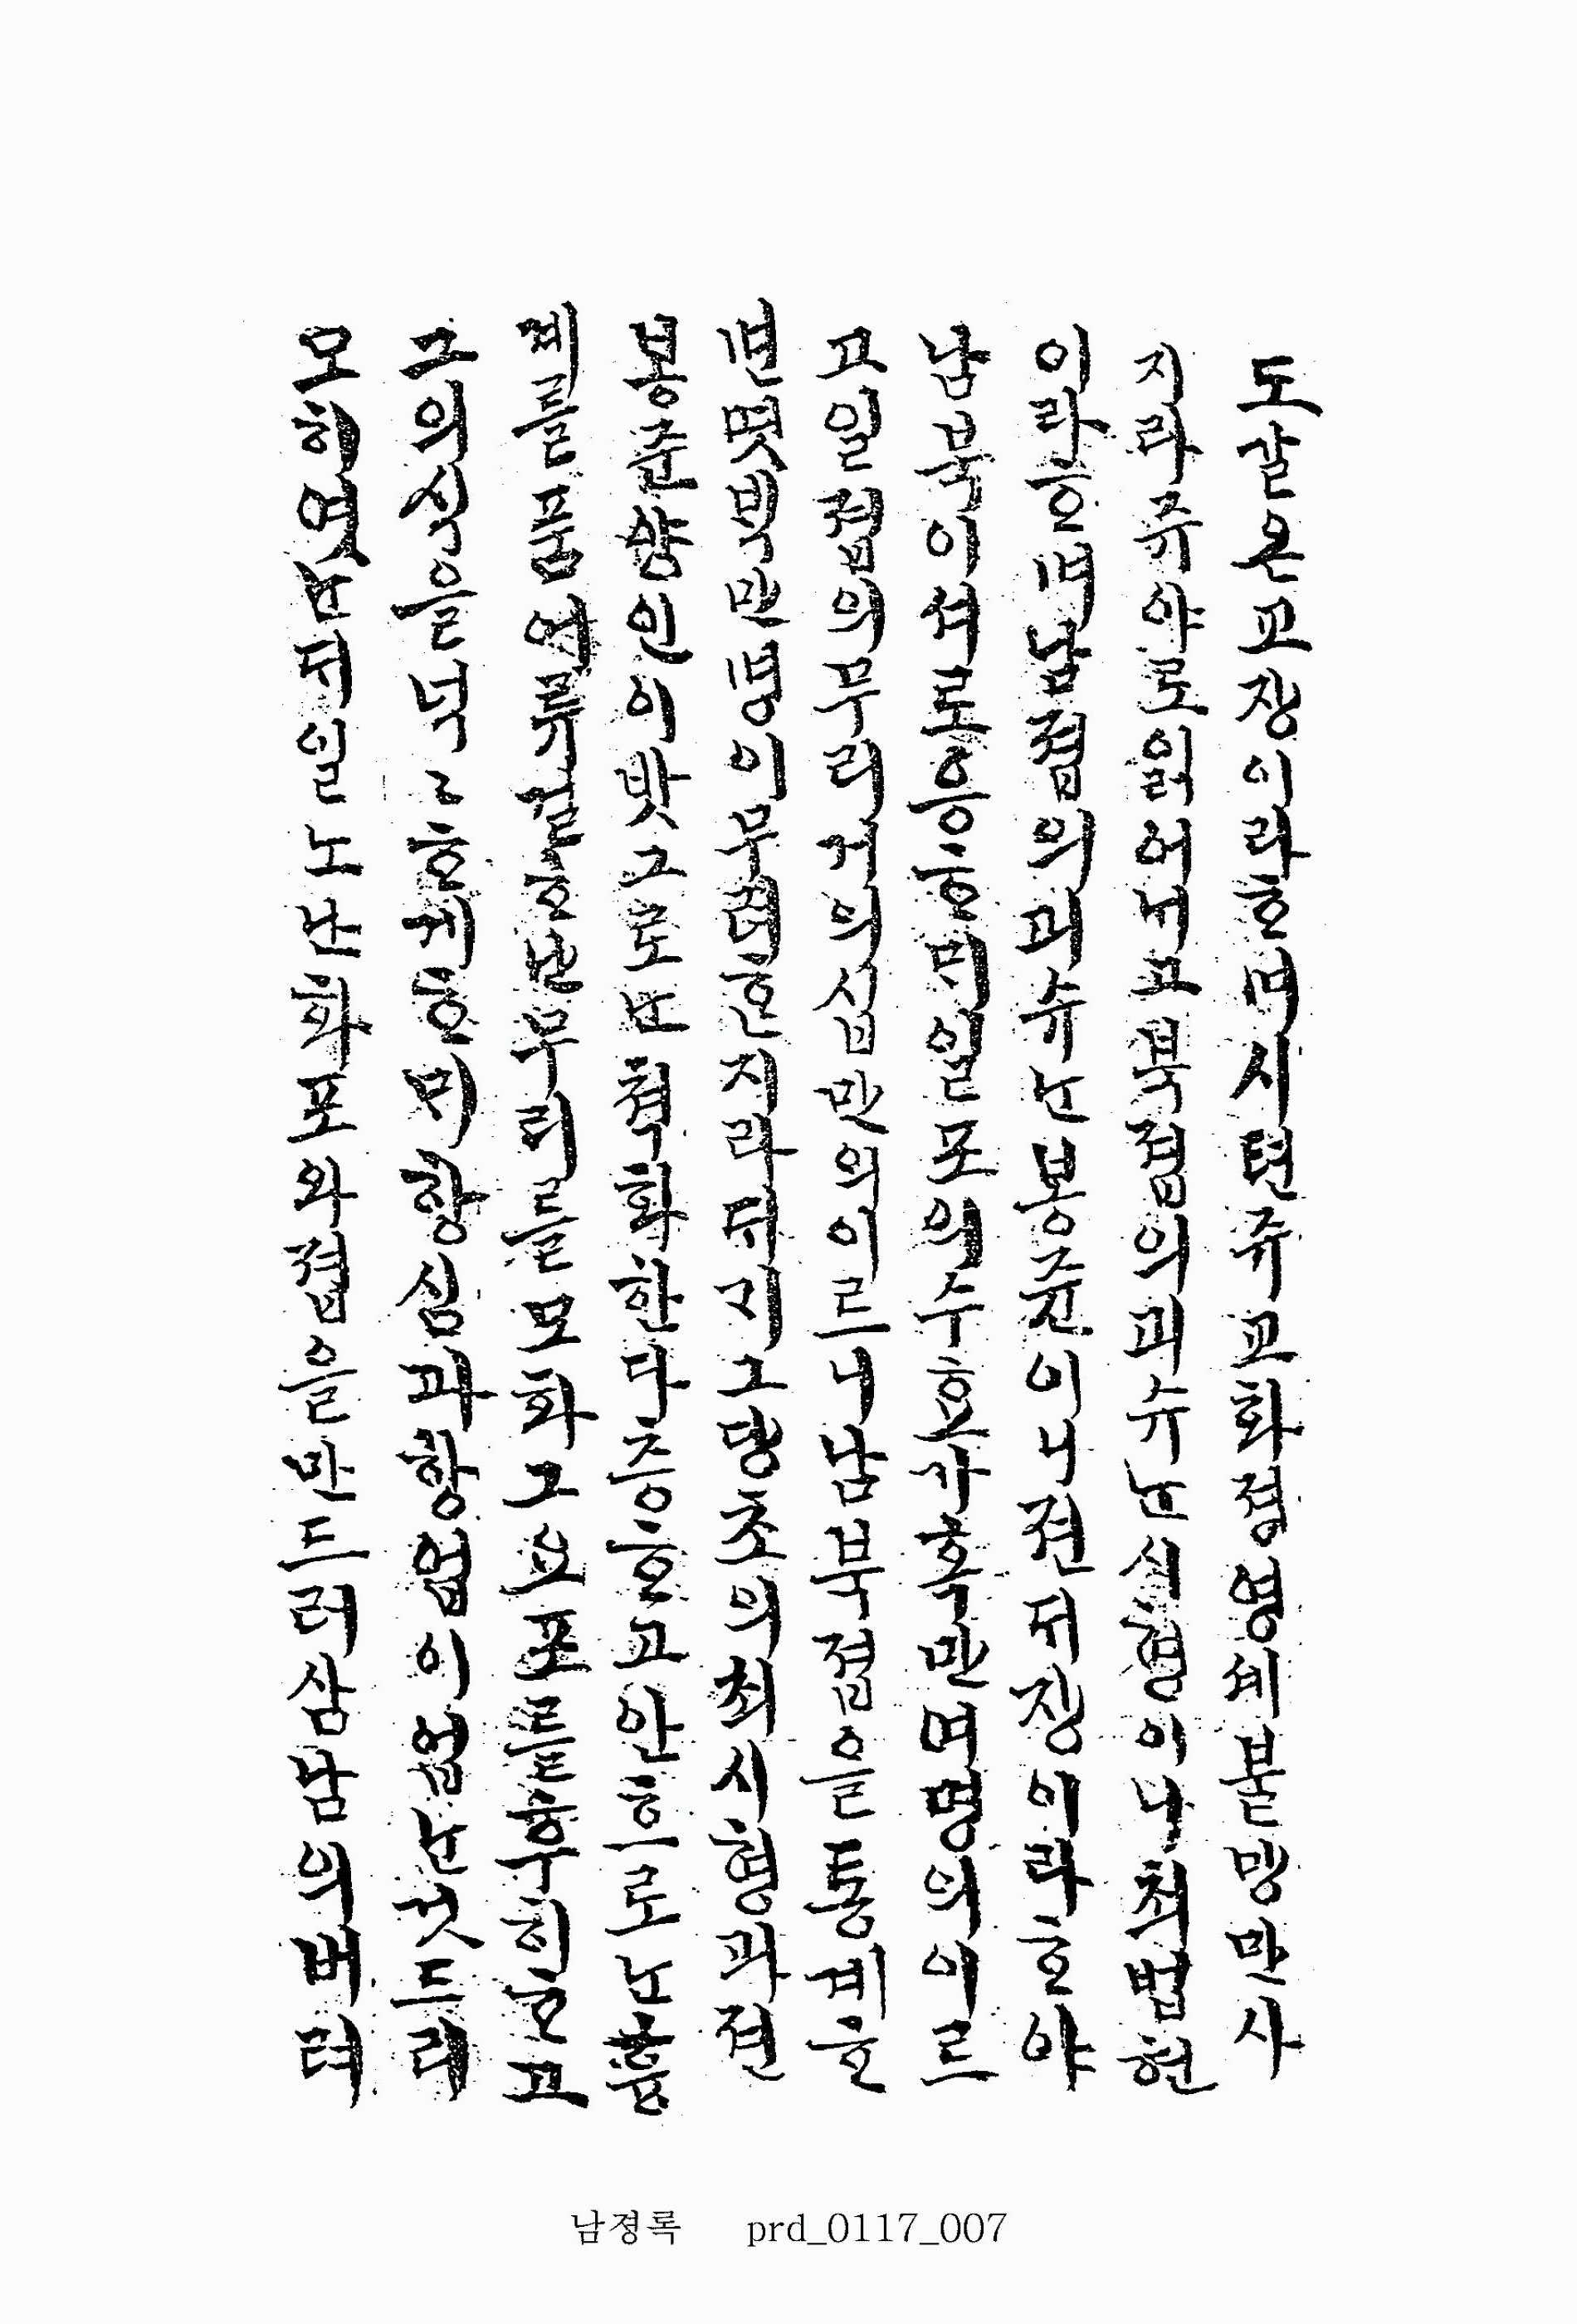 도갈온교쟝이라ᄒᆞ며시텬쥬교화졍영셰불망만사
지라쥬야로읽어ᄂᆡ고북졉의괴슈ᄂᆞᆫ시형이나최법헌
이라ᄒᆞ며남졉의괴슈ᄂᆞᆫ봉쥰이니젼ᄃᆡ쟝이라ᄒᆞ야
남북이셔로응ᄒᆞᄆᆡ일포의수효가혹만여명의이르
고일졉의무리거의십만의이르니남북졉을통계ᄒᆞ
면몃ᄇᆡᆨ만명이무려ᄒᆞᆫ지라ᄃᆡᄀᆡ그당조의최시형과젼
봉쥰냥인이밧그로ᄂᆞᆫ쳑화한다층ᄒᆞ고안흐로ᄂᆞᆫ흉
계를품어류걸ᄒᆞᄂᆞᆫ무리를모화그요포를후히ᄒᆞ고
그의식을넉〻ᄒᆞ게ᄒᆞᄆᆡ항심과항업이업ᄂᆞᆫ것드리
모히엿ᄂᆞᆫᄃᆡ일노난화포와졉을만드러삼남의버려
남졍록 prd_0117_007